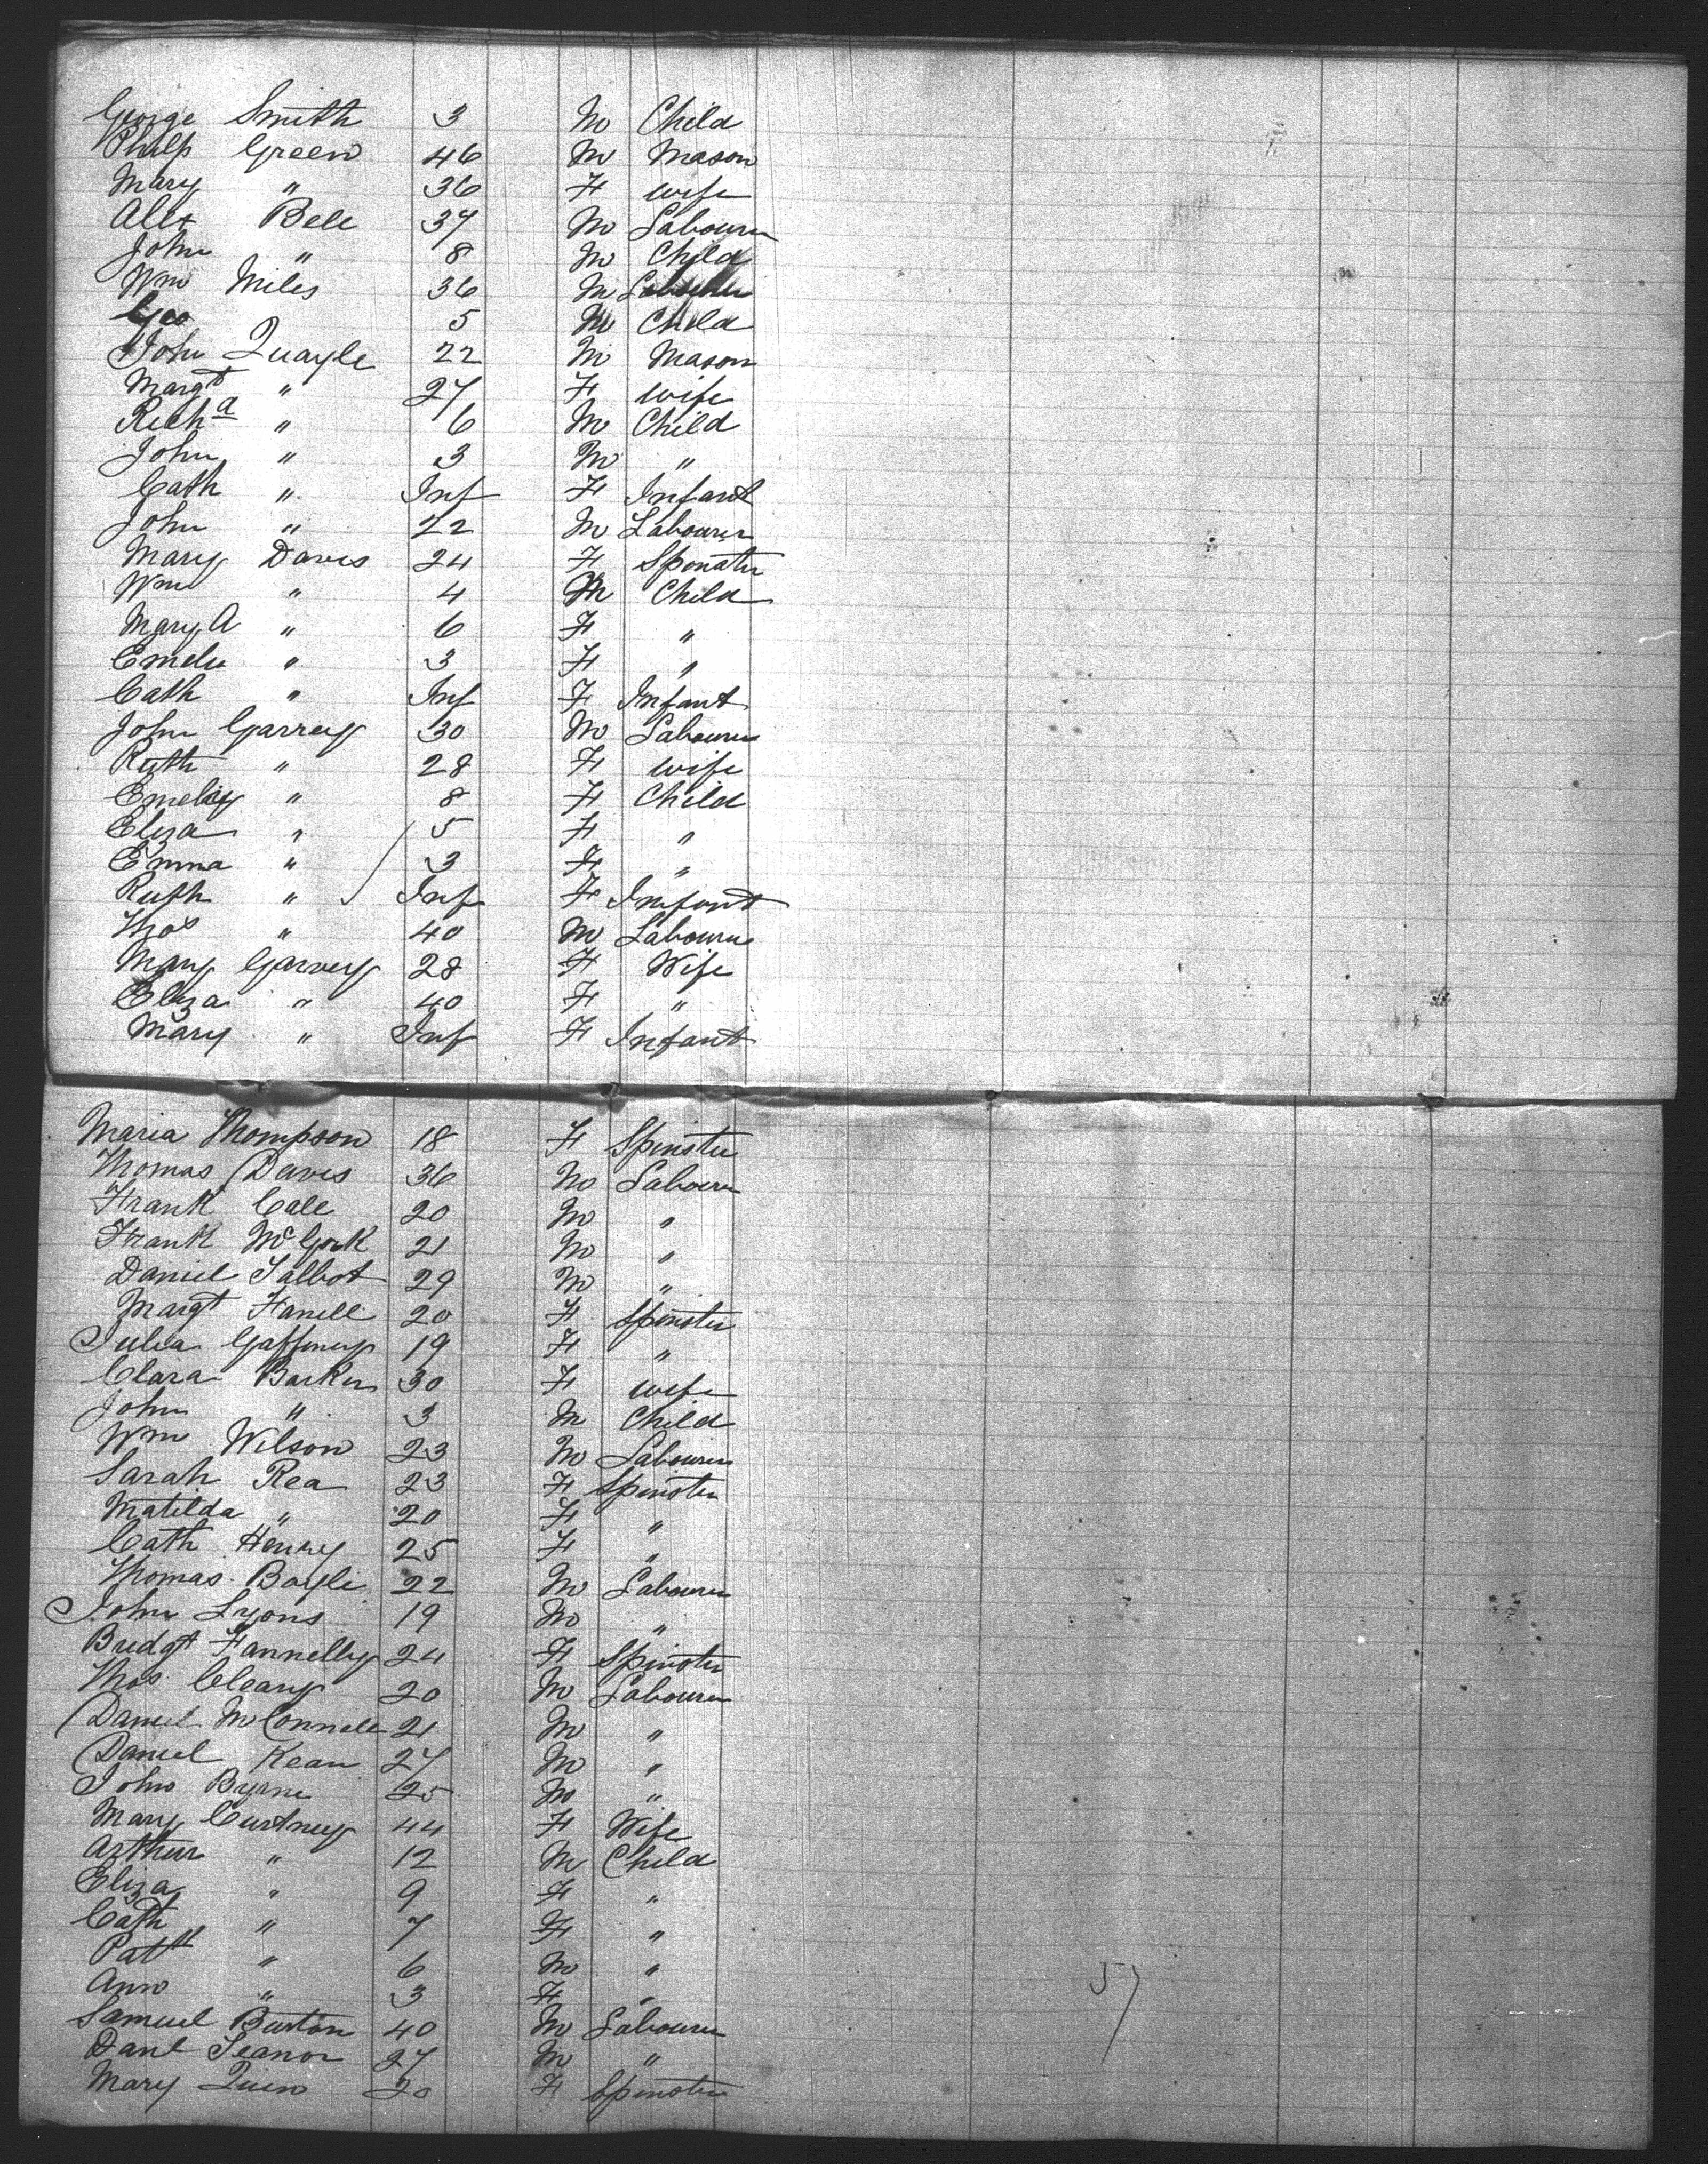 George Smith 3 M Child
Philp Green 46 M Mason
Mary " 36 F wife
Alex Bell 37 M Labourer
John " 8 M Child
Wm Miles 36 M Labourer
Geo 5 M Child
John Quayle 22 M Mason
Margt " 27 F wife
Richd " 6 M Child
John " 3 M "
Cath " Inf F Infant
John " 22 M Labourer
Mary Davis 24 F Spinster
Wm " 4 M Child
Mary A " 6 F "
Emelie " 3 F "
Cath " Inf F Infant
John Garrey 30 M Labourer
Ruth " 28 F wife
Emeliey " 8 F Child
Eliza " 5 F "
Emma " 3 F "
Ruth " Inf F Infant
Thos " 40 M Labourer
Mary Garvey 28 F Wife
Eliza " 40 F "
Mary " Inf F Infant
Maria Thompson 18 F Spinster
Thomas Davis 36 M Labourer
Frank Cale 20 M "
Frank McGork 21 M "
Daniel Talbot 29 M "
Margt Farrell 20 F Spinster
Julia Gaffney 19 F "
Clara Barker 30 F wife
John " 3 M Child
Wm Wilson 23 M Labourer
Sarah Rea 23 F Spinster
Matilda " 20 F "
Cath Henry 25 F "
Thomas Boyle 22 M Labourer
John Lyons 19 M "
Bridgt Fannelly 24 F Spinster
Thos Cleary 20 M Labourer
Daniel McConnell 21 M "
Daniel Kean 27 M "
John Byrne 25 M "
Mary Curtney 44 F Wife
Arthur " 12 M Child
Eliza " 9 F "
Cath " 7 F "
Patk " 6 M "
Ann " 3 F "
Samuel Burton 40 M Labourer
Danl Leanor 27 M "
Mary Quin 20 F Spinster
57